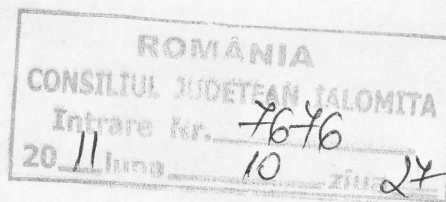 ROMÂNIA
CONSILIUL JUDEŢEAN IALOMIŢA
Intrare Nr. 7676
20 11 luna 10 ziua 27